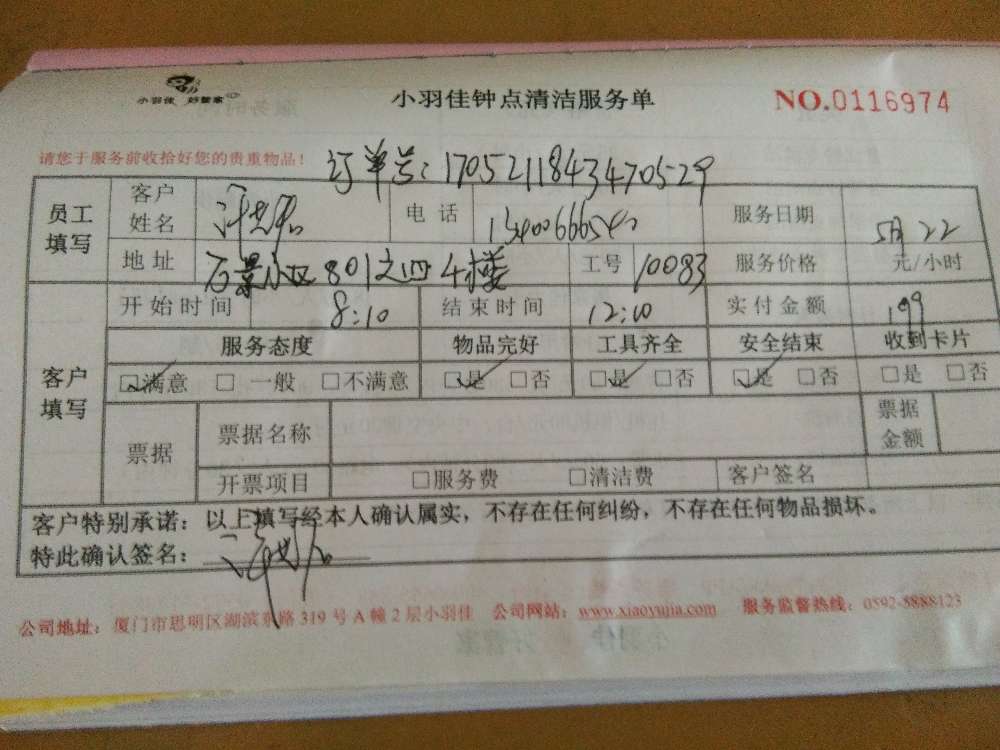 小羽佳 好管家
小羽佳钟点清洁服务单 NO.0116974
请您于服务前收拾好您的贵重物品！ 订单号：1705211843470529
员工填写 客户姓名 电话 服务日期 5月22
地址 石景小区801之四4楼 工号 10083 服务价格 元/小时
客户填写 开始时间 8:10 结束时间 12:10 实付金额 199
服务态度 物品完好 工具齐全 安全结束 收到卡片
☑满意 □一般 □不满意 ☑是 □否 ☑是 □否 ☑是 □否 □是 □否
票据 票据名称 票据金额
开票项目 □服务费 □清洁费 客户签名
客户特别承诺：以上填写经本人确认属实，不存在任何纠纷，不存在任何物品损坏。
特此确认签名：
公司地址：厦门市思明区湖滨东路319号A幢2层小羽佳 公司网站：www.xiaoyujia.com 服务监督热线：0592-5888123